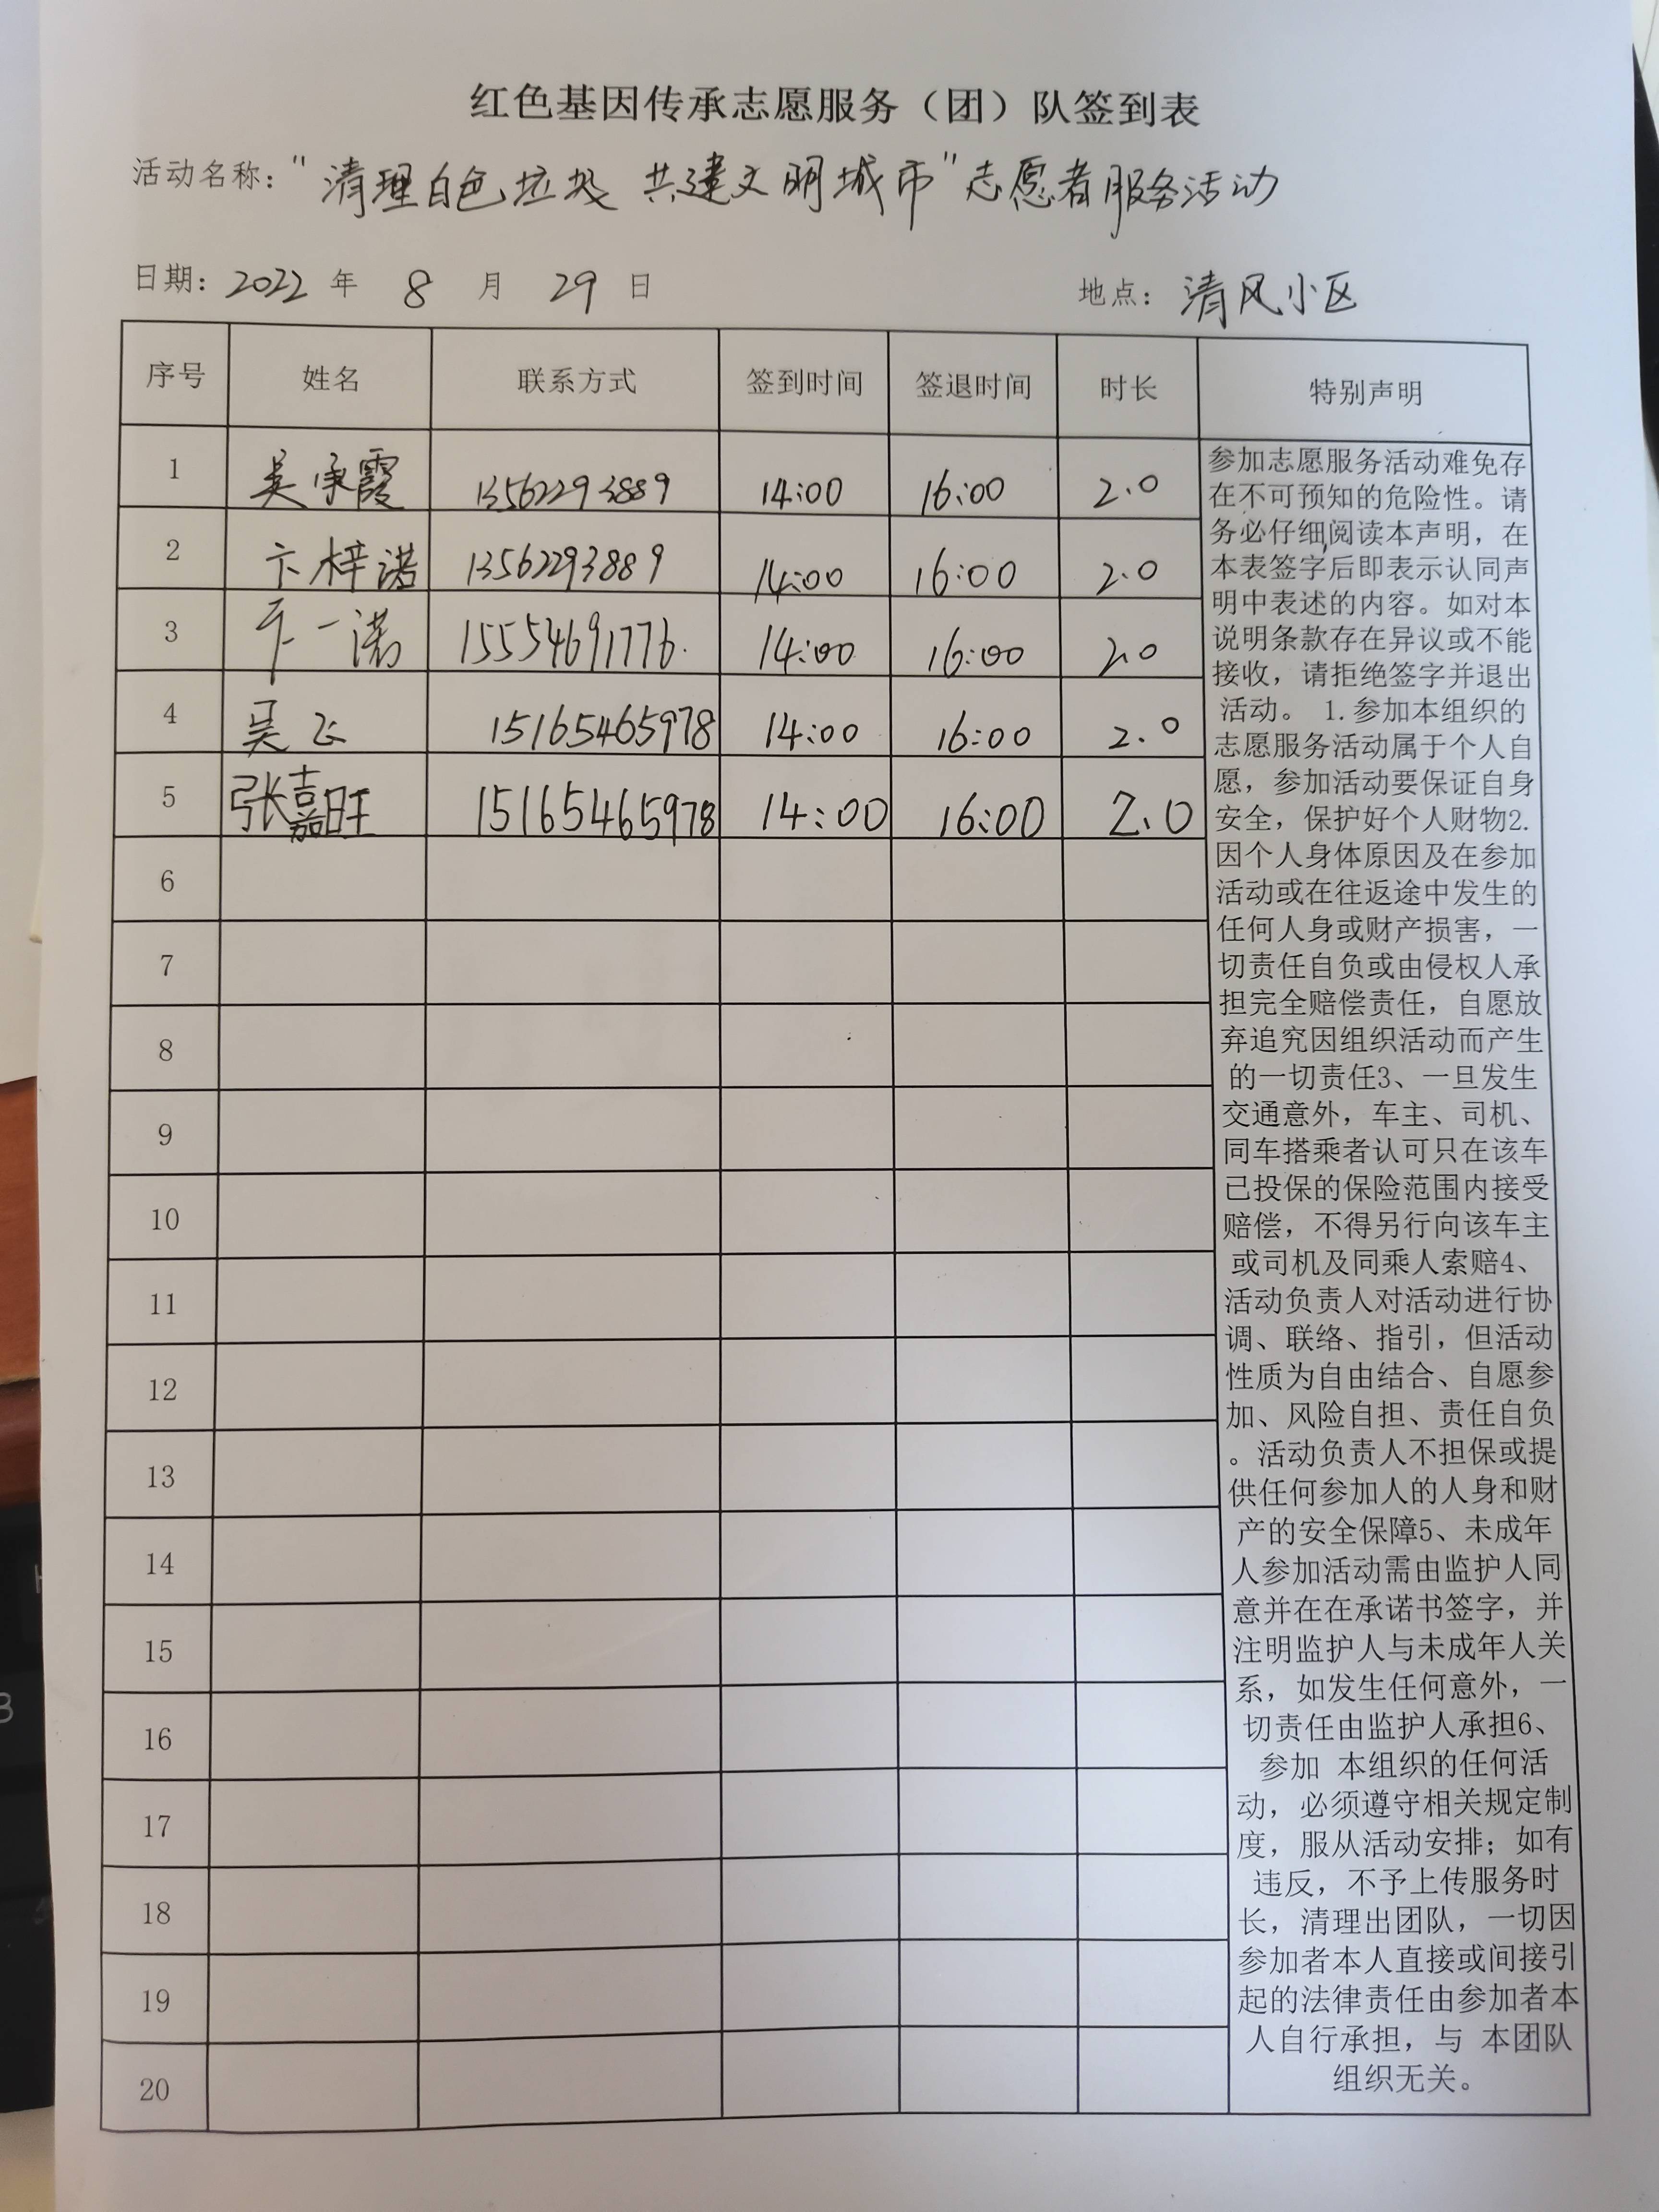 红色基因传承志愿服务（团）队签到表
活动名称："清理白色垃圾 共建文明城市"志愿者服务活动
日期：2022 年 8 月 29 日 地点：清风小区
序号 姓名 联系方式 签到时间 签退时间 时长 特别声明
1 吴承霞 13562293889 14:00 16:00 2.0
2 卞梓诺 13562293889 14:00 16:00 2.0
3 卞一诺 15554691776. 14:00 16:00 2.0
4 吴飞 15165465978 14:00 16:00 2.0
5 张嘉旺 15165465978 14:00 16:00 2.0
6
7
8
9
10
11
12
13
14
15
16
17
18
19
20
参加志愿服务活动难免存
在不可预知的危险性。请
务必仔细阅读本声明，在
本表签字后即表示认同声
明中表述的内容。如对本
说明条款存在异议或不能
接收，请拒绝签字并退出
活动。 1.参加本组织的
志愿服务活动属于个人自
愿，参加活动要保证自身
安全，保护好个人财物2.
因个人身体原因及在参加
活动或在往返途中发生的
任何人身或财产损害，一
切责任自负或由侵权人承
担完全赔偿责任，自愿放
弃追究因组织活动而产生
的一切责任3、一旦发生
交通意外，车主、司机、
同车搭乘者认可只在该车
已投保的保险范围内接受
赔偿，不得另行向该车主
或司机及同乘人索赔4、
活动负责人对活动进行协
调、联络、指引，但活动
性质为自由结合、自愿参
加、风险自担、责任自负
。活动负责人不担保或提
供任何参加人的人身和财
产的安全保障5、未成年
人参加活动需由监护人同
意并在在承诺书签字，并
注明监护人与未成年人关
系，如发生任何意外，一
切责任由监护人承担6、
参加 本组织的任何活
动，必须遵守相关规定制
度，服从活动安排；如有
违反，不予上传服务时
长，清理出团队，一切因
参加者本人直接或间接引
起的法律责任由参加者本
人自行承担，与 本团队
组织无关。